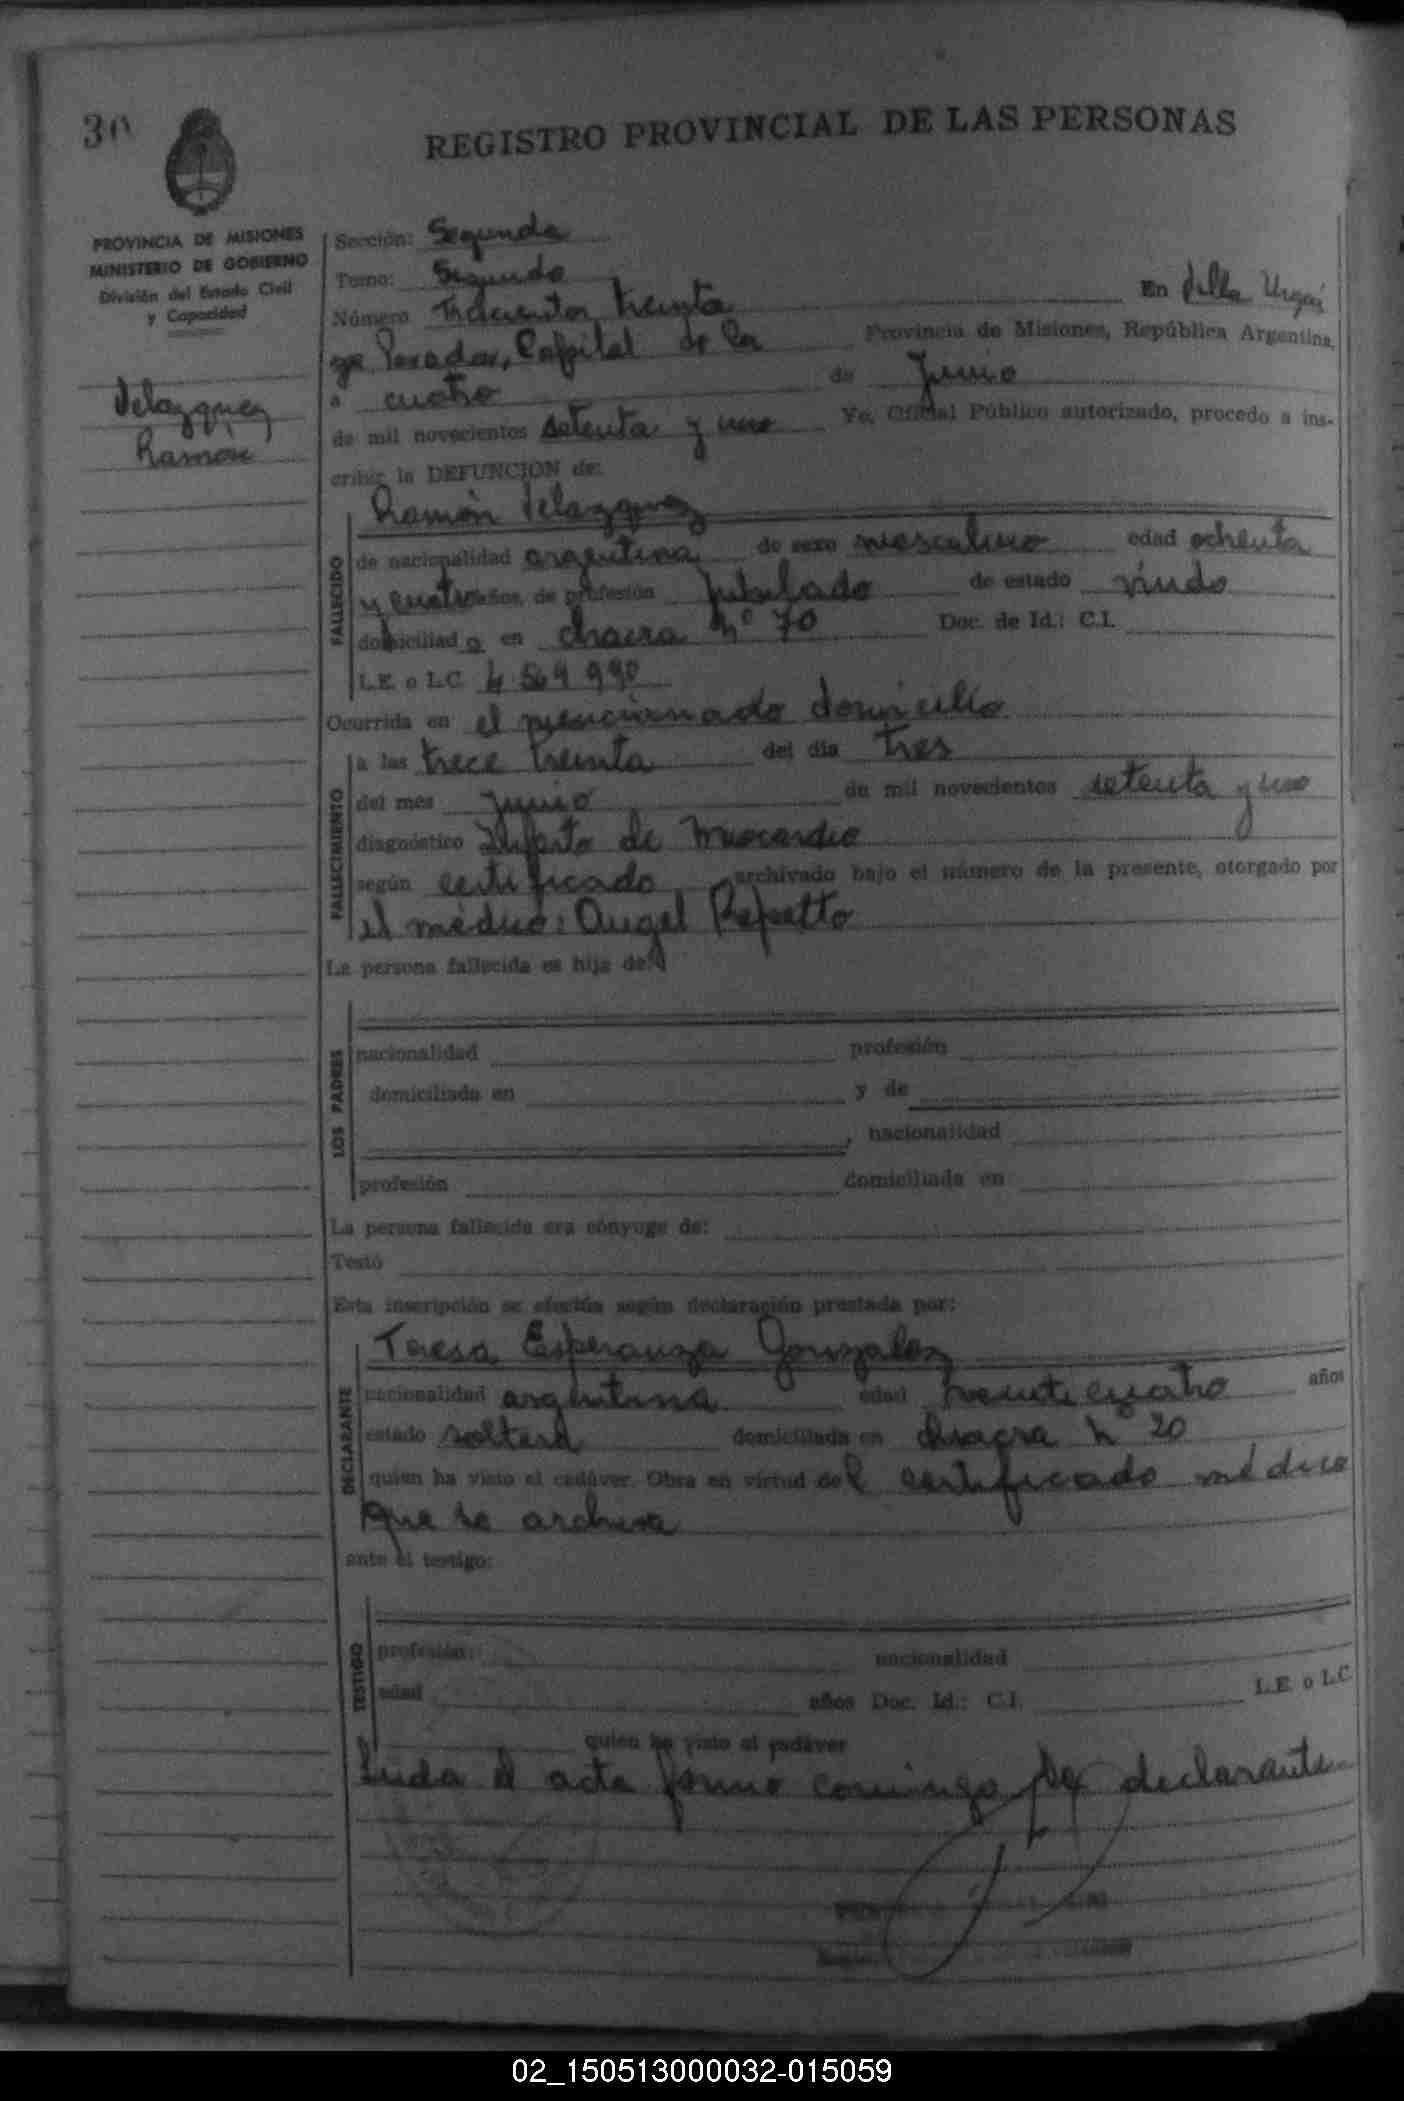 30
REGISTRO PROVINCIAL DE LAS PERSONAS
PROVINCIA DE MISIONES
MINISTERIO DE GOBIERNO
División del Estado Civil
y Capacidad
Velazquez
Ramón
Sección: Segunda
Tomo: Segundo
Número Trescientos treinta En Villa Urqui
za Posadas, Capital de la Provincia de Misiones, República Argentina,
a cuatro de Junio
de mil novecientos setenta y uno Yo, Oficial Público autorizado, procedo a ins-
cribir la DEFUNCION de:
Ramón Velazquez
FALLECIDO
de nacionalidad argentina de sexo masculino edad ochenta
y cuatro años, de profesión Jubilado de estado viudo
domiciliado en chacra nº 70 Doc. de Id.: C.I.
L.E. o L.C. 4.569.990
Ocurrida en el mencionado domicilio
FALLECIMIENTO
a las trece treinta del día tres
del mes Junio de mil novecientos setenta y uno
diagnóstico Infarto de Miocardio
según certificado archivado bajo el número de la presente, otorgado por
el médico: Angel Repetto
La persona fallecida es hija de:
LOS PADRES
nacionalidad profesión
domiciliada en y de
, nacionalidad
profesión domiciliada en
La persona fallecida era cónyuge de:
Testó
Esta inscripción se efectúa según declaración prestada por:
Teresa Esperanza Gonzalez
DECLARANTE
nacionalidad argentina edad veinticuatro años
estado soltera domiciliada en chacra nº 20
quien ha visto el cadáver. Obra en virtud del certificado médico
que se archiva
ante el testigo:
TESTIGO
profesión: nacionalidad
edad años Doc. Id.: C.I. L.E. o L.C.
quien ha visto el cadáver
Leida el acta firmó conmigo la declarante
02_150513000032-015059